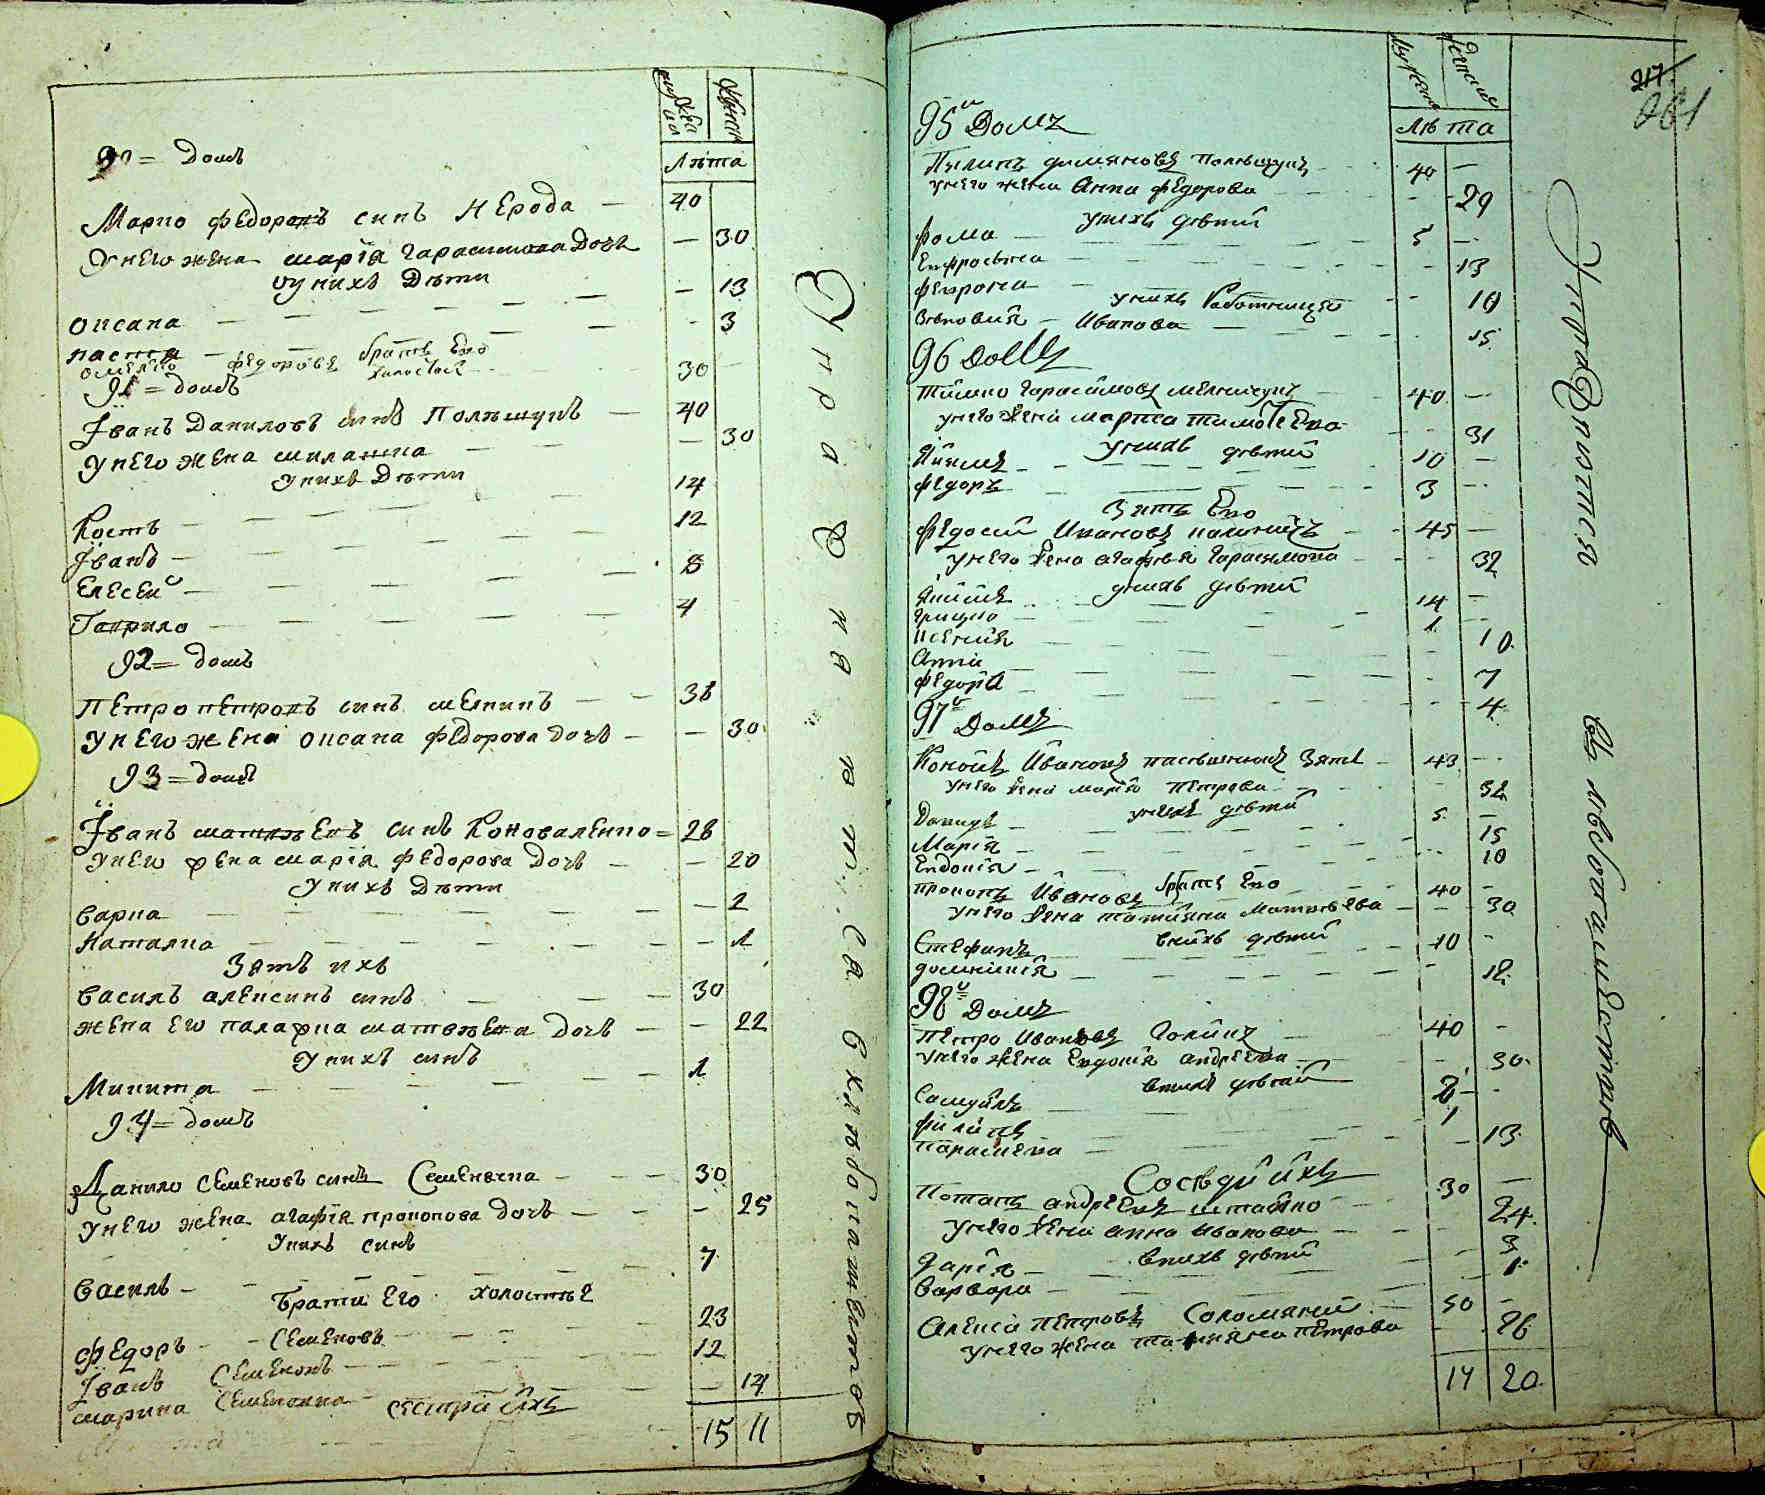 мужска женска
Лѣта
90 = домъ
Марко Федоровъ синъ Нерода 40
У него жена марія гарасимова Дочъ 30
у нихъ Дѣти
оксана 13
настя 3
омелко федоровъ братъ Его холостой 30
91 = домъ
Іванъ Даниловъ синъ Полѣщукъ 40
У него жена миланка 30
у нихъ Дѣти
Кость 14
Іванъ 12
Елесей 8
Гаврило 4
92 = домъ
Петро петровъ синъ мелникъ 38
У него жена оксана федорова дочъ 30
93 = домъ
Іванъ матвѣевъ синъ Коноваленко 28
У него жена марія федорова дочъ 20
у нихъ Дѣти
варка 2
Наталка 1
Зятъ ихъ
василъ алексинъ синъ 30
жена его палажка матвѣева дочъ 22
у нихъ синъ
Микита 1
94 = домъ
Данило семеновъ синъ Семенячка 30
У него жена агафія прокопова дочъ 25
у нихъ синъ
василь 7
Брати Его холостые
федоръ Семеновъ 23
Іванъ Семеновъ 12
марина Семеновна сестра ихъ 14
15 11
Украинятся в клѣбопашествѣ
217
261
Лѣта
95й Домъ
Пилипъ демяновъ Полѣщукъ 40
у него жена Анна федорова 29
у нихъ дѣтей
фома 5
Ефросиня 13
февронia 10
у нихъ Работница
Зѣновия Иванова 15
96 Домъ
Тимко гарасимовъ мелнищукъ 40
у него жена марта тимофеева 31
у нихъ дѣтей
Якимъ 10
федоръ 3
Зять Его
федосей Ивановъ 45
у него жена агафия гарасимова 32
у нихъ дѣтей
Якимъ 14
грицко 1
Ксения 10
Анна 7
федора 4
97й Домъ
Кононъ Ивановъ Зять 43
у него жена мария петрова 32
у нихъ дѣтей
Давидъ 5
Мария 15
Евдокия 10
прокопъ Ивановъ братъ Его 40
у него жена татияна матвѣева 30
в нихъ дѣтей
Стефанъ 10
домникия 12
98й Домъ
Петро Ивановъ Голикъ 40
у него жена Евдокия андреева 30
в нихъ дѣтей
Самуйлъ 2
филипъ 1
параскева 13
Сосѣди ихъ
Потапъ андреевъ 30
у него жена анна Иванова 24
в нихъ дѣтей
дария 3
варвара 1
Алекса петровъ Соломяний 50
у него жена татияна петрова 26
14 20
Упражняются въ хлѣбопашествѣ